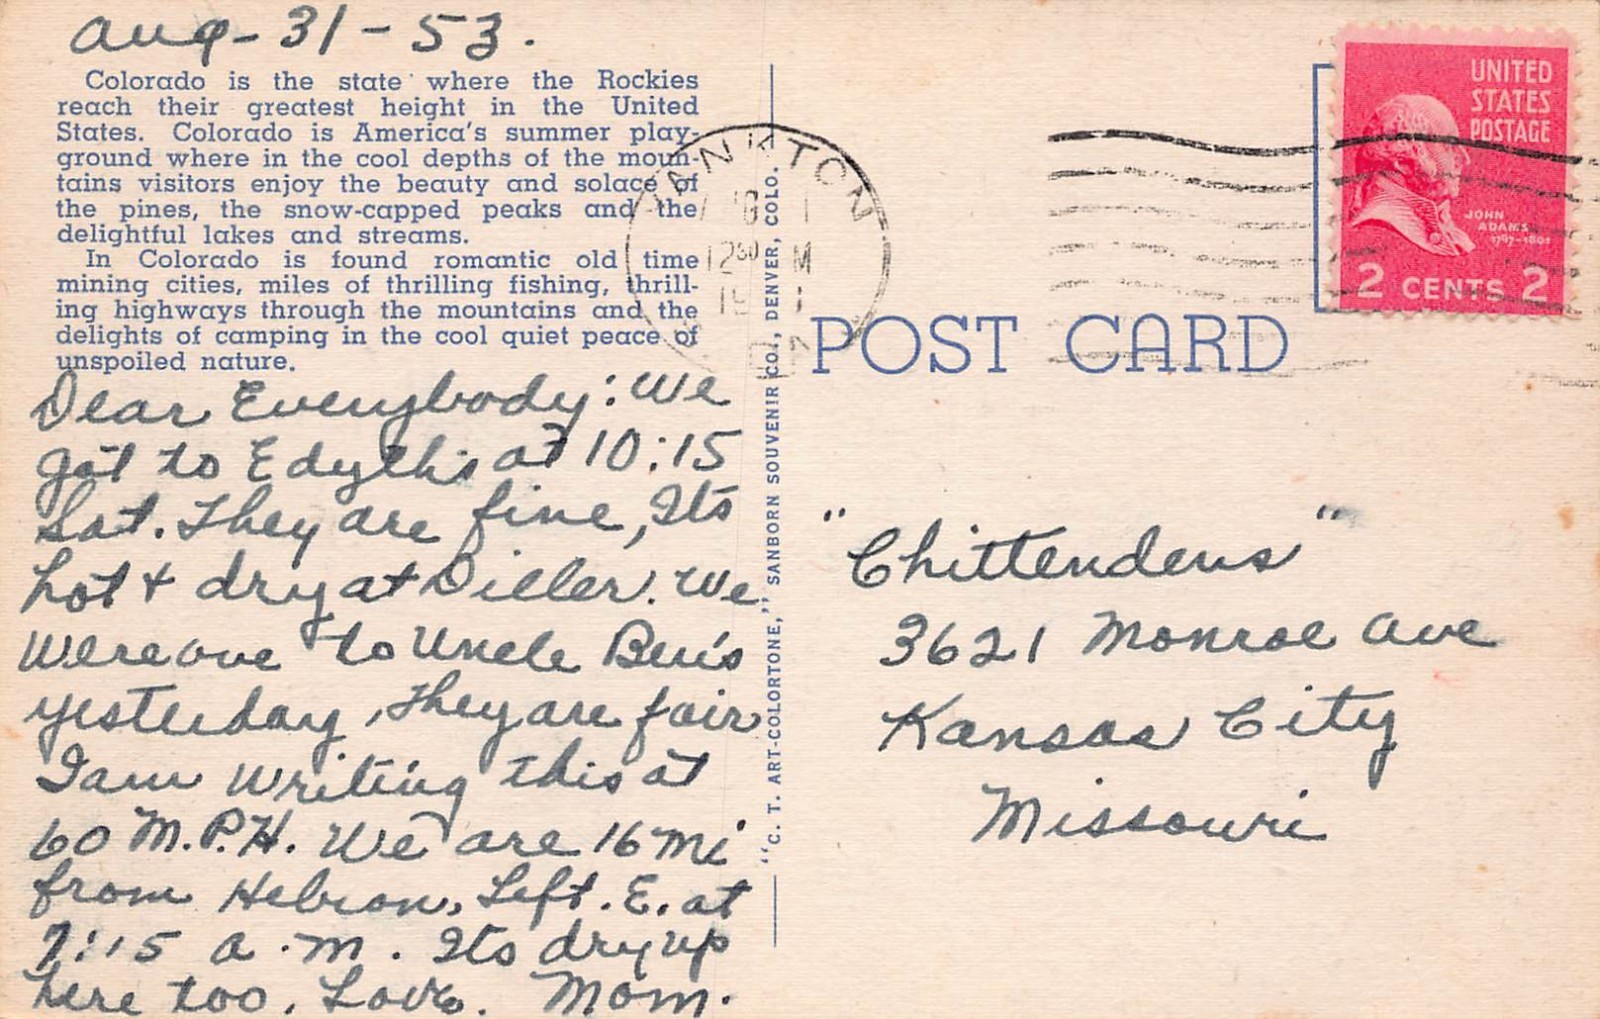 Aug-31-53.
Colorado is the state where the Rockies
reach their greatest height in the United
States. Colorado is America's summer play-
ground where in the cool depths of the moun-
tains visitors enjoy the beauty and solace of
the pines, the snow-capped peaks and the
delightful lakes and streams.
In Colorado is found romantic old time
mining cities, miles of thrilling fishing, thrill-
ing highways through the mountains and the
delights of camping in the cool quiet peace of
unspoiled nature.
Dear Everybody: We
got to Edyth's at 10:15
Sat. They are fine, Its
hot & dry at Diller. We
were over to Uncle Ben's
yesterday, They are fair
I am writing this at
60 M.P.H. We are 16 mi
from Hebron, Left. E. at
7:15 a.m. Its dry up
here too. Love. Mom.
"C. T. ART-COLORTONE," SANBORN SOUVENIR CO., DENVER, COLO.
YANKTON
12 30 M
UNITED
STATES
POSTAGE
JOHN
ADAMS
1797-1801
2 CENTS 2
POST CARD
"Chittendens"
3621 Monroe Ave
Kansas City
Missouri